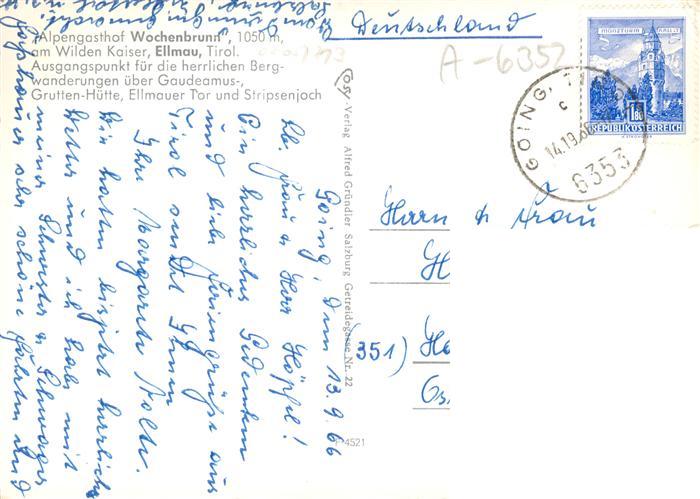 Deutschland
"Alpengasthof Wochenbrunn", 1050 m,
am Wilden Kaiser, Ellmau, Tirol.
Ausgangspunkt für die herrlichen Berg-
wanderungen über Gaudeamus-,
Grutten-Hütte, Ellmauer Tor und Stripsenjoch
A-6352
MÜNZTURM HALL I. T.
1.80
REPUBLIK ÖSTERREICH
GOING, T
c
14.19.66
6353
Cosy-Verlag Alfred Gründler Salzburg Getreidegasse Nr. 22
F 4521
Going, den 13.9.66
Lb. Frau & Herr Höpfl!
Ein herzliches Gedenken
und liebe Feriengrüße aus
Tirol sendet Ihnen
Ihre Margarete Nolte.
Wir hatten bisjetzt herrliches
Wetter und ich habe mit
meiner Schwester & Schwager
schon sehr schöne Fahrten und
Herrn & Frau
H
(351) Ho
Gs.